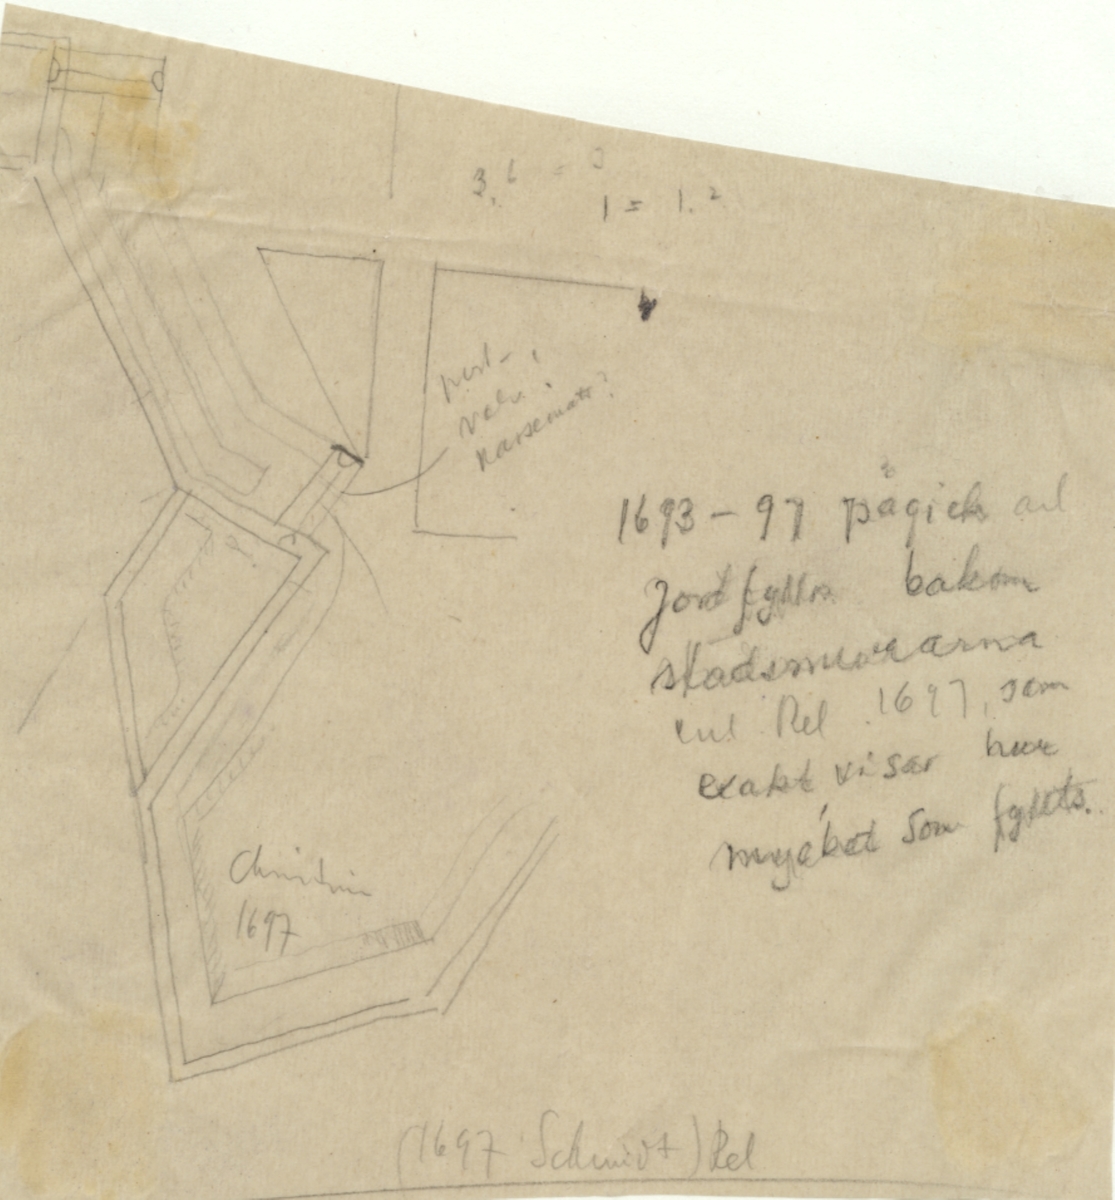 3,6 = 3
1 = 1.2
port-
valv.
kasematt?
1693-97 pågick
Jordfylln bakom
stadsmurarna
enl Rel 1697, som
exakt visar hur
mycket som fyllts.
1697
(1697 Schmidt) Rel